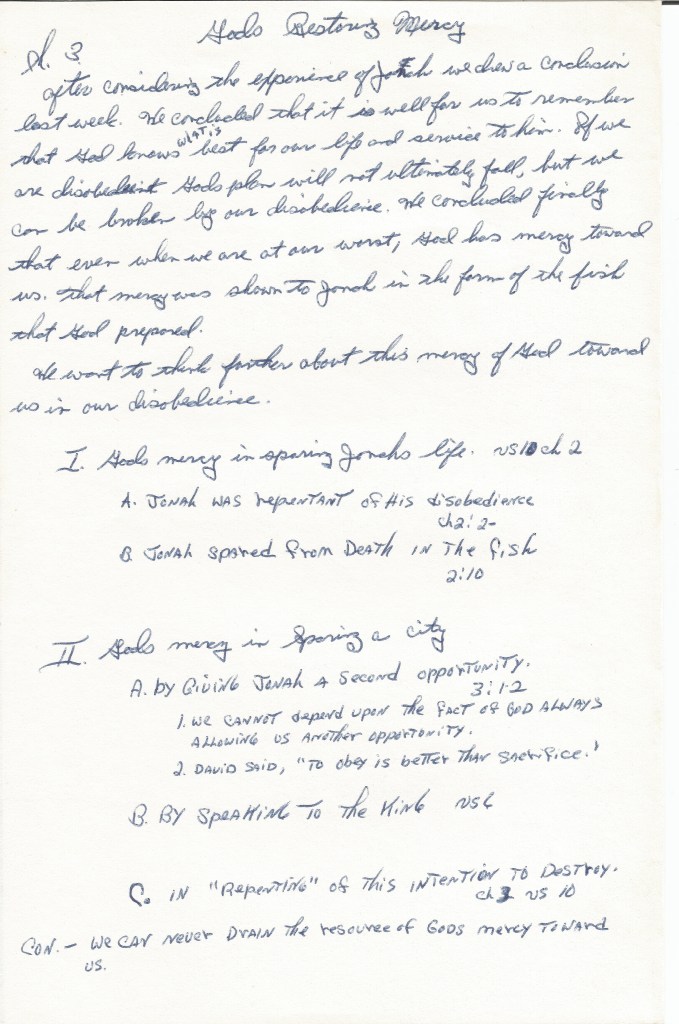 Gods Restoring Mercy
pt. 3
After considering the experience of Jonah we drew a conclusion
last week. We concluded that it is well for us to remember
that God knows what is best for our life and service to him. If we
are disobedient Gods plan will not ultimately fall, but we
can be broken by our disobedience. We concluded finally
that even when we are at our worst, God has mercy toward
us. That mercy was shown to Jonah in the form of the fish
that God prepared.
We want to think further about this mercy of God toward
us in our disobedience.
I. Gods mercy in sparing Jonahs life. vs 10 ch 2
A. Jonah was repentant of His disobedience
ch 2:2-
B. Jonah spared from Death in the fish
2:10
II. Gods mercy in Sparing a city
A. by Giving Jonah a second opportunity.
3:1-2
1. we cannot depend upon the fact of God always
allowing us another opportunity.
2. David said, "To obey is better than sacrifice."
B. By speaking to the King vs 6
C. in "Repenting" of this intention to Destroy.
ch 3 vs 10
Con. - we can never Drain the resource of Gods mercy toward
us.